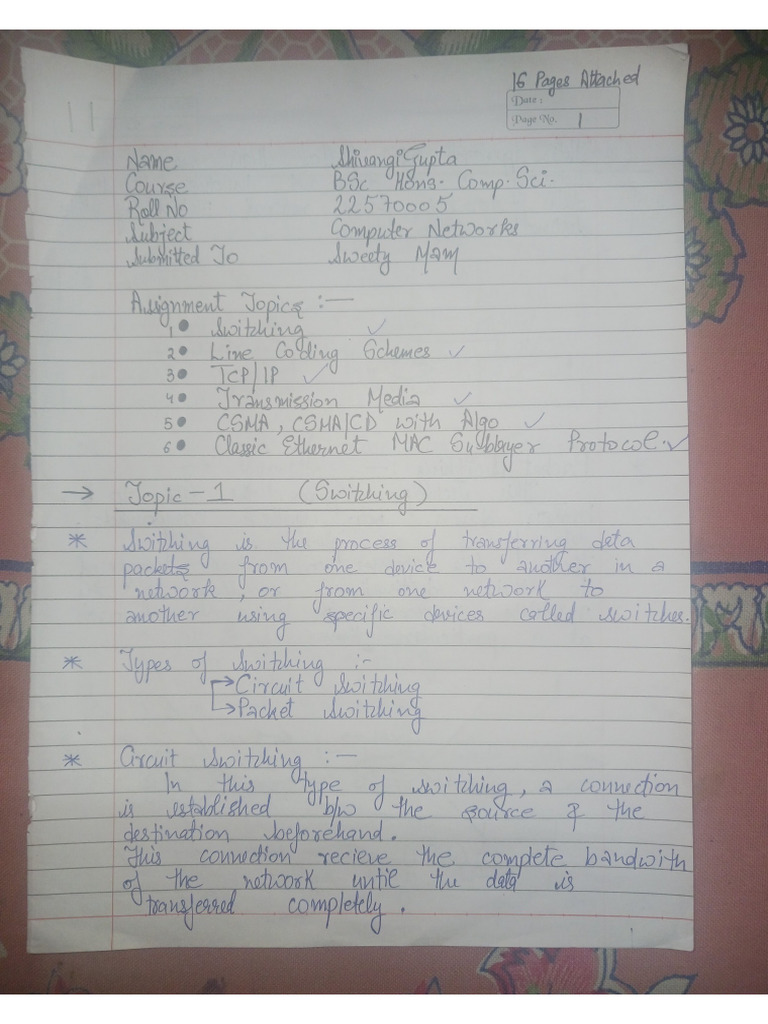 16 Pages Attached
Date :
Page No. 1
Name Shivangi Gupta
Course BSc Hons. Comp. Sci.
Roll No 22570005
Subject Computer Networks
Submitted To Sweety Mam
Assignment Topics :—
1 ● Switching ✓
2 ● Line Coding Schemes ✓
3 ● TCP/IP ✓
4 ● Transmission Media ✓
5 ● CSMA, CSMA/CD with Algo ✓
6 ● Classic Ethernet MAC Sublayer Protocol. ✓
→ Topic - 1 (Switching)
* Switching is the process of transferring data
packets from one device to another in a
network, or from one network to
another using specific devices called switches.
* Types of Switching :-
→ Circuit Switching
→ Packet Switching
* Circuit Switching :—
In this type of switching, a connection
is established b/w the source & the
destination beforehand.
This connection recieve the complete bandwith
of the network until the data is
transferred completely.